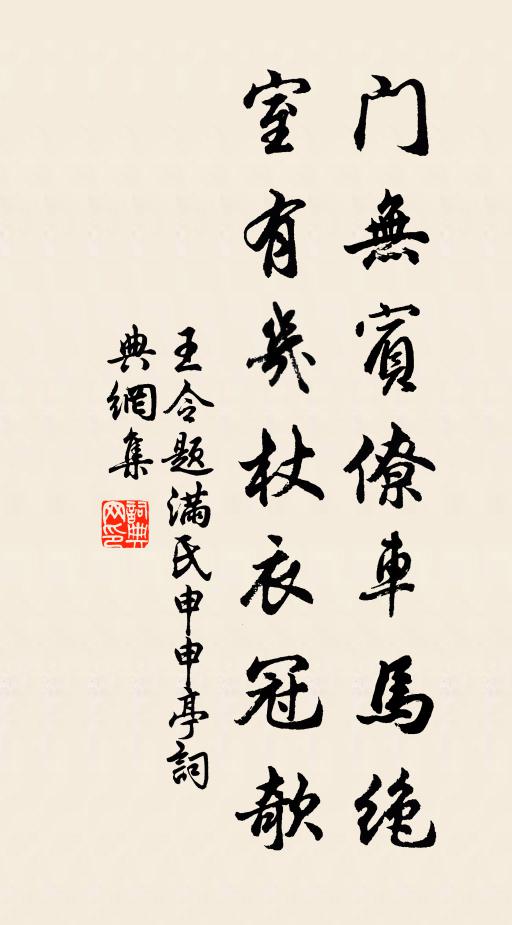 門無賓僚車馬絶
室有幾杖衣冠欹
王令題滿氏申申亭詞
典網集
詞典
网印